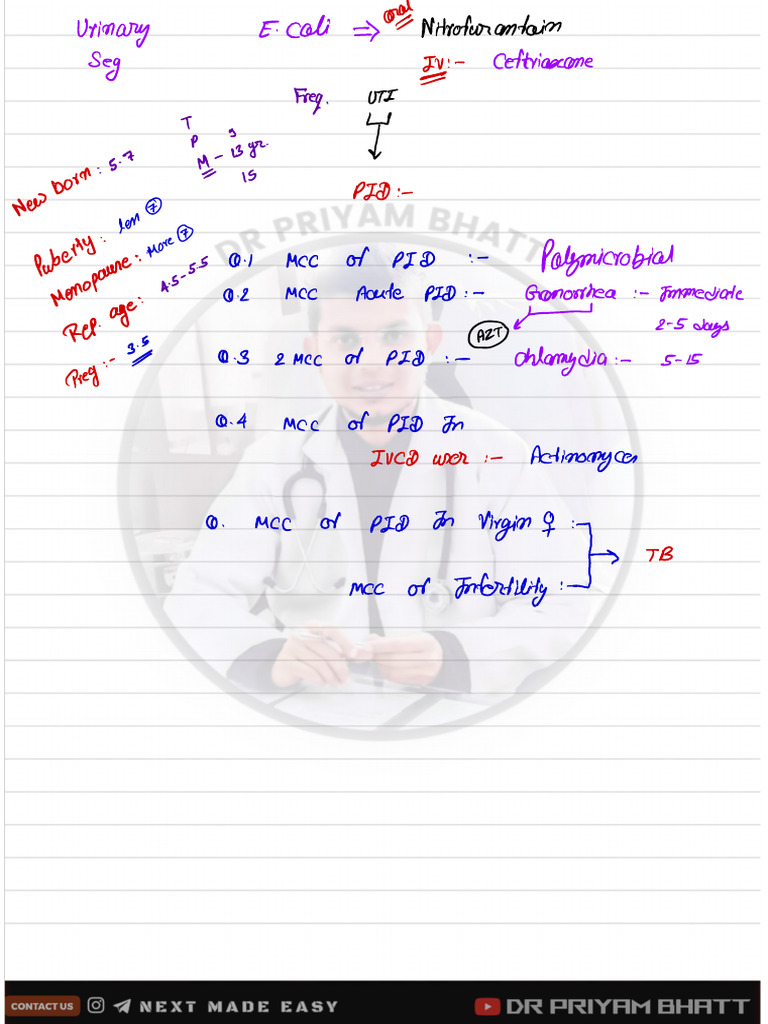 Urinary E. Coli ⇒ oral Nitrofurantoin
Seg IV:- Ceftriaxone
Freq. UTI
T
P S
M - 13 yr.
15
New born : 5.7
PID :-
DR PRIYAM BHATT
Puberty : len 7
Monopause : More 7
Rep. age : 4.5 - 5.5
Preg :- 3.5
Q.1 MCC of PID :- Polymicrobial
Q.2 MCC Acute PID :- Gonorrhea :- Immediate
2-5 days
AZT
Q.3 2 MCC of PID :- Chlamydia :- 5-15
Q.4 MCC of PID In
IVCD user :- Actinomyces
Q. MCC of PID In Virgin ♀ :-
TB
MCC of Infertility :-
CONTACT US NEXT MADE EASY DR PRIYAM BHATT